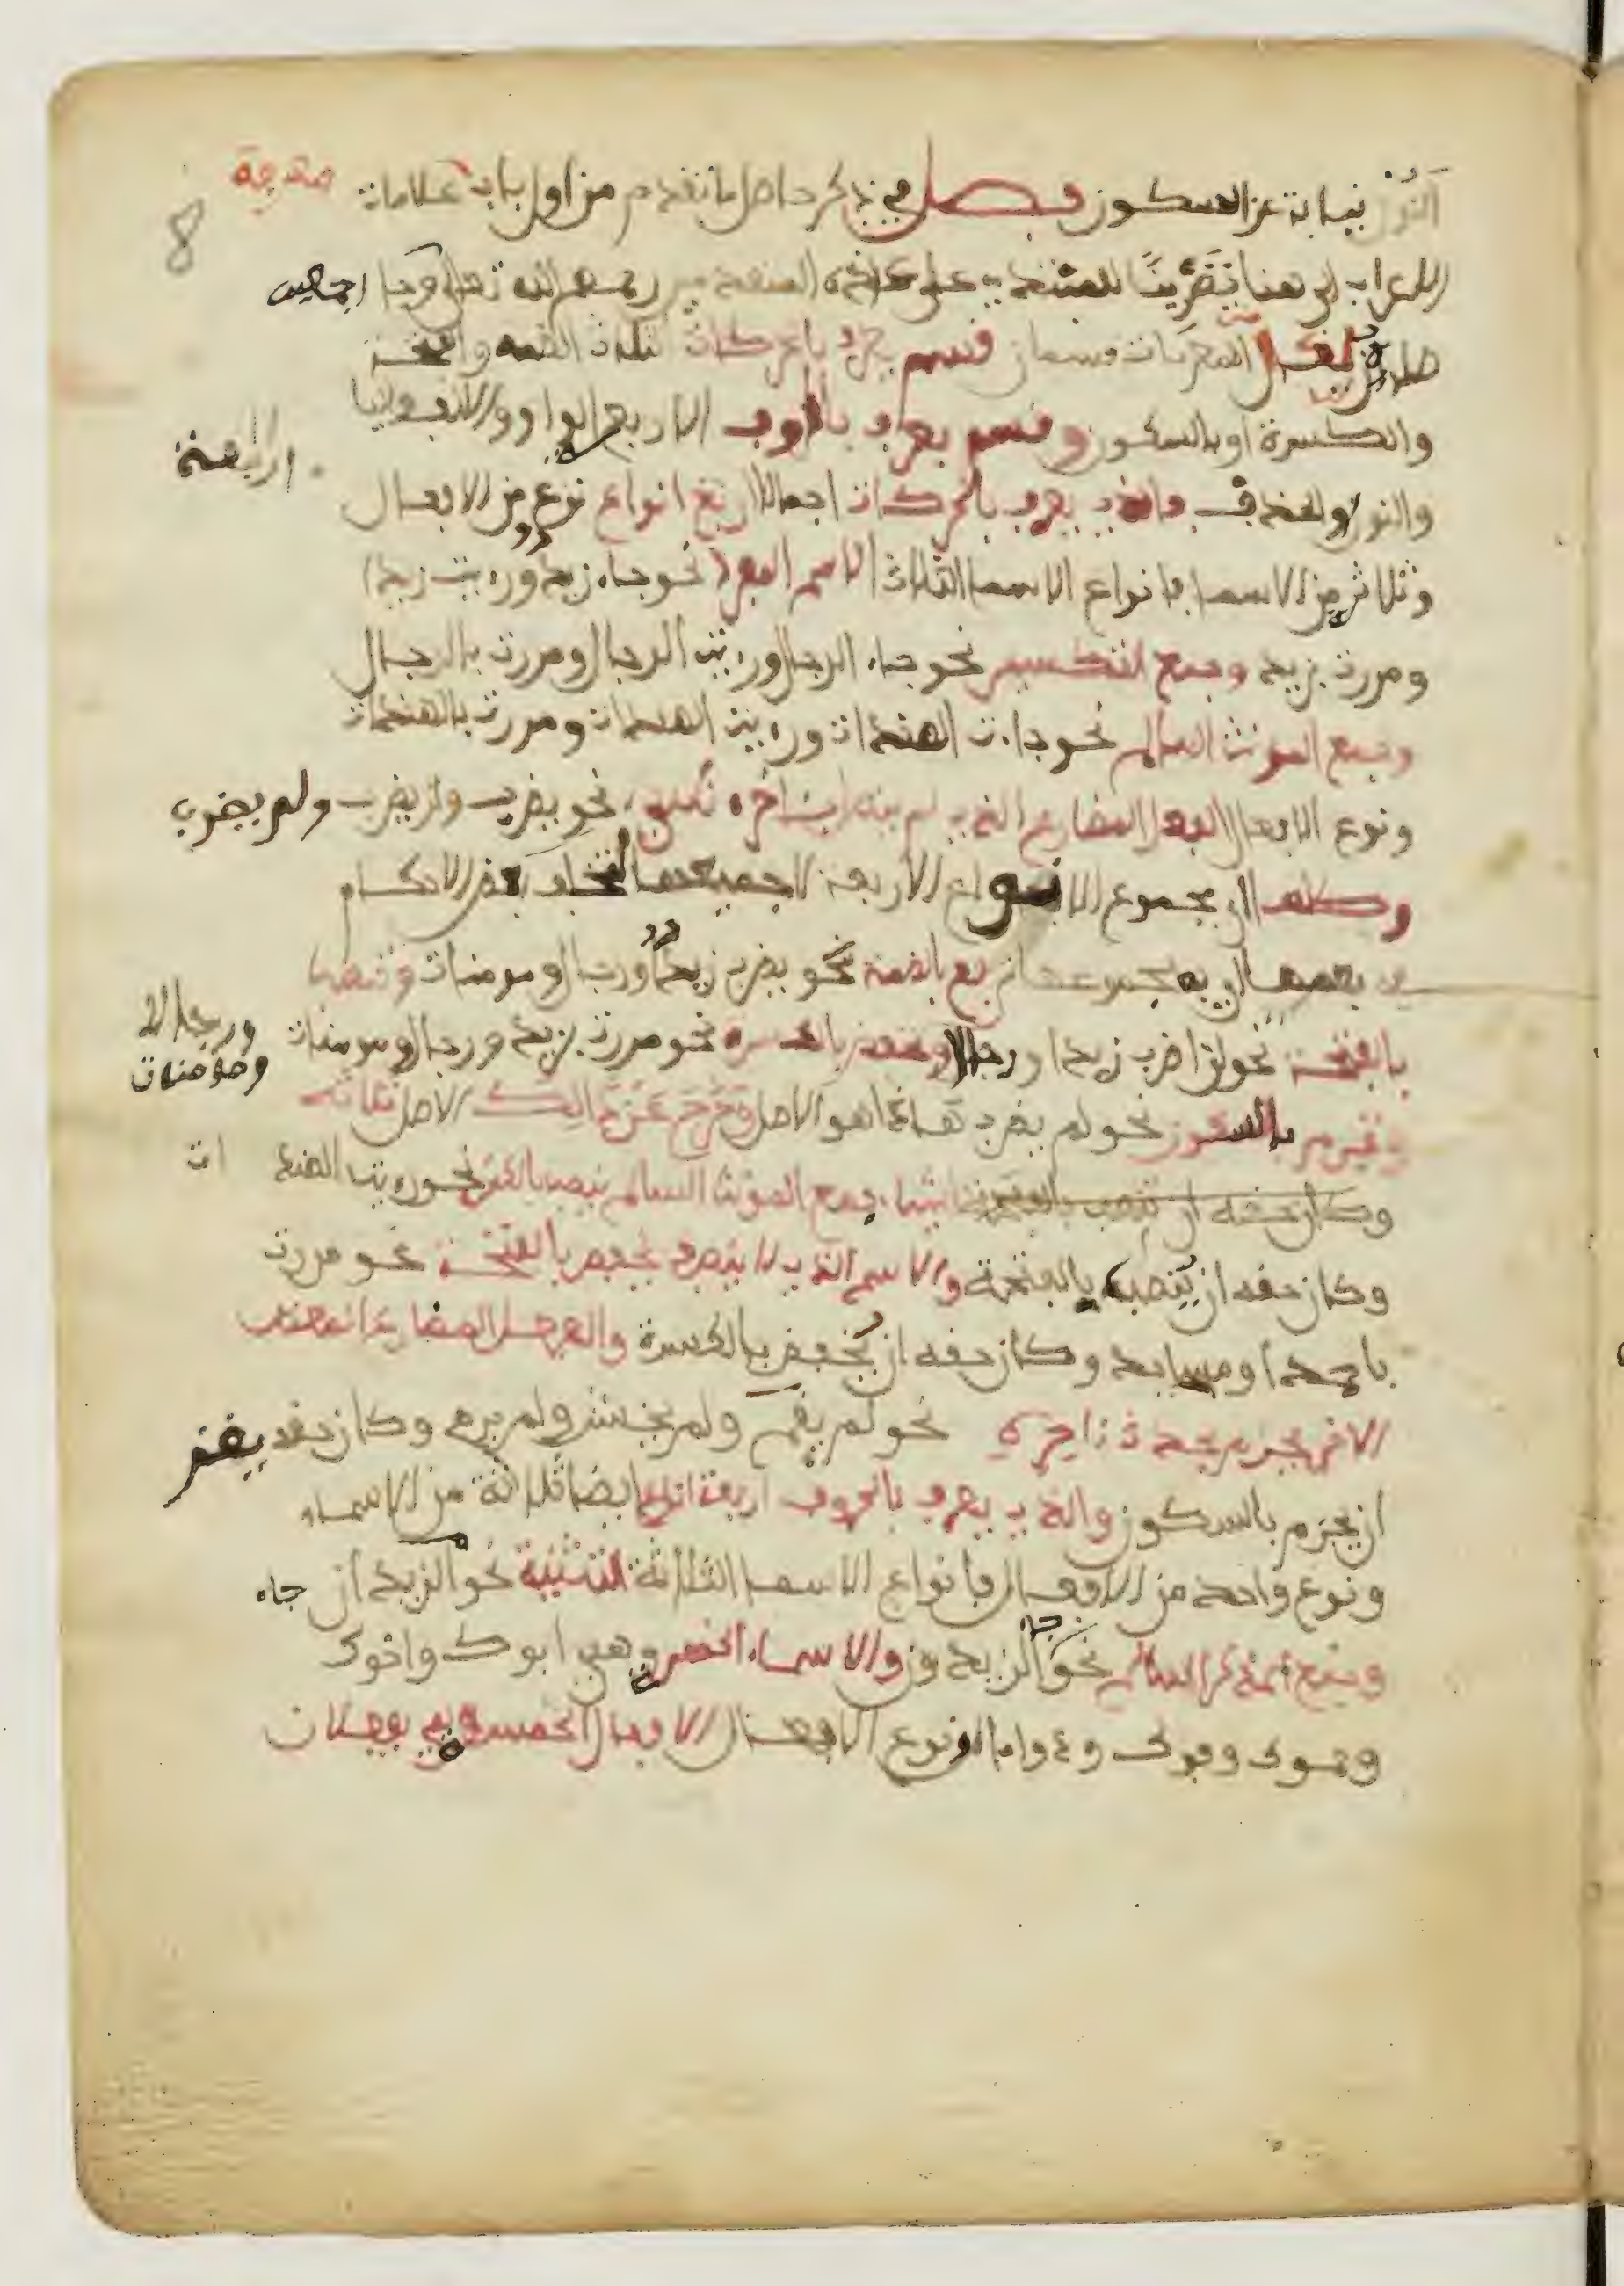 النون نيابة عن السكون فصل في ذكر حاصل ما تقدم من اول باب علامات
الاعراب الى هنا تمرينا للمبتدي على عادة المتقدمين رحمهم الله تعالى
المعربات قسمان قسم يعرب بالحركات الثلاث الضمة والفتحة
والكسرة او بالسكون وقسم يعرب بالحروف الاربعة الواو والالف والياء
والنون والحذف والذي يعرب بالحركات اجمالا اربع انواع نوع من الافعال
وثلاثة من الاسماء فانواع الاسماء الثلاث الاسم المفرد نحو جاء زيد ورءيت زيدا
ومررت بزيد وجمع التكسير نحو جاء الرجال ورءيت الرجال ومررت بالرجال
وجمع المونث السالم نحو جاءت الهندات ورءيت الهندات ومررت بالهندات
ونوع الافعال الفعل المضارع الذي لم يتصل بآخره شيء نحو يضرب ولن يضرب ولم يضرب
وكلها اي مجموع الانواع الاربعة لا جميعها لتخلف بعض الاحكام
في بعضها اي مجموعها ترفع بالضمة نحو يضرب زيد ورجال ومومنات وتنصب
بالفتحة نحو لن اضرب زيدا ورجالا وتخفض بالكسرة نحو مررت بزيد ورجال ومومنات
ورجالا
ومومنات
وتجزم بالسكون نحو لم يضرب هذا هو الاصل وخرج عن ذالك الاصل ثلاثة
اشياء جمع المونث السالم ينصب بالكسرة نحو رءيت الهندات
وكان حقه ان ينصب بالفتحة والاسم الذي لا ينصرف يخفض بالفتحة نحو مررت
باحمد ومساجد وكان حقه ان يخفض بالكسرة والفعل المضارع المعتل
الاخر يجزم بحذف ءاخره نحو لم يقض ولم يخش ولم يرم وكان حقه
ان يجزم بالسكون والذي يعرب بالحروف اربعة انواع ايضا ثلاثة من الاسماء
ونوع واحد من الافعال فانواع الاسماء الثلاثة التثنية نحو جاء الزيدان
وجمع المذكر السالم نحو جاء الزيدون والاسماء الخمسة وهي ابوك واخوك
وحموك وفوك وذو مال ونوع الافعال الافعال الخمسة وهي يفعلان